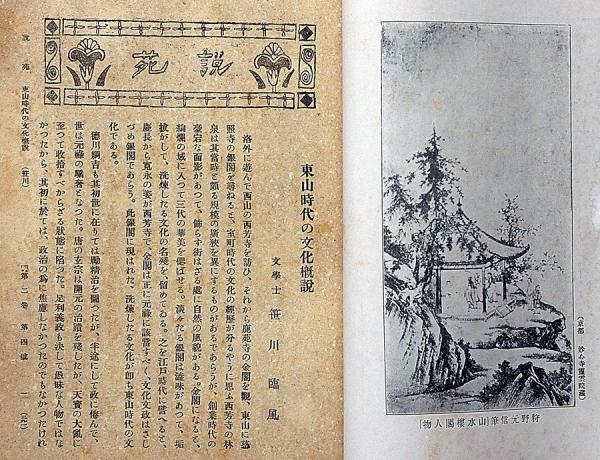 (京都 妙心寺靈雲院藏)
狩野元信筆「山水樓閣人物」
說苑
東山時代の文化概說
文學士 笹川臨風
洛外に遊んで西山の西芳寺を訪ひ、それから鹿苑寺の金閣を觀、東山に慈
照寺の銀閣を尋ねると、室町時代の文化の經歷が分るやうに思ふ西芳寺の林
泉は其當時と頗る規模の廣狹を異にするものがあるであらうが、創業時代の
豪宕な面影があつて、飾らず衒はざる處に自然の風貌がある。金閣になると、
絢爛の域に入つて三代の華美を偲ばせる。潰えたる銀閣は澁味があつて、垢
拔がして、洗煉したる文化の名殘を留めてゐる。之を江戶時代に譬へると、
慶長から寬永の姿が西芳寺で、金閣は正に元祿に該當すべく、文化文政はさし
づめ銀閣であらう。此銀閣に現はれた、洗煉したる文化が卽ち東山時代の文
化である。
德川綱吉も其初世に在りては勵精治を圖つたが、半途にして政に倦んで、
世は元祿の驕奢となつた。唐の玄宗は開元の治蹟を殘したが、天寶の大亂に
至つて收拾すべからざる狀態に陷つた。足利義政も決して愚昧な人物ではな
かつたから、其初に於ては、政治の爲に焦慮しなかつたのでもなかつたけれ
說苑 東山時代の文化概說 (笹川)
第二卷 第四號 一